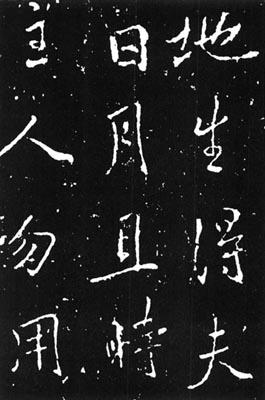 地生得夫
日月且時
主人勿用